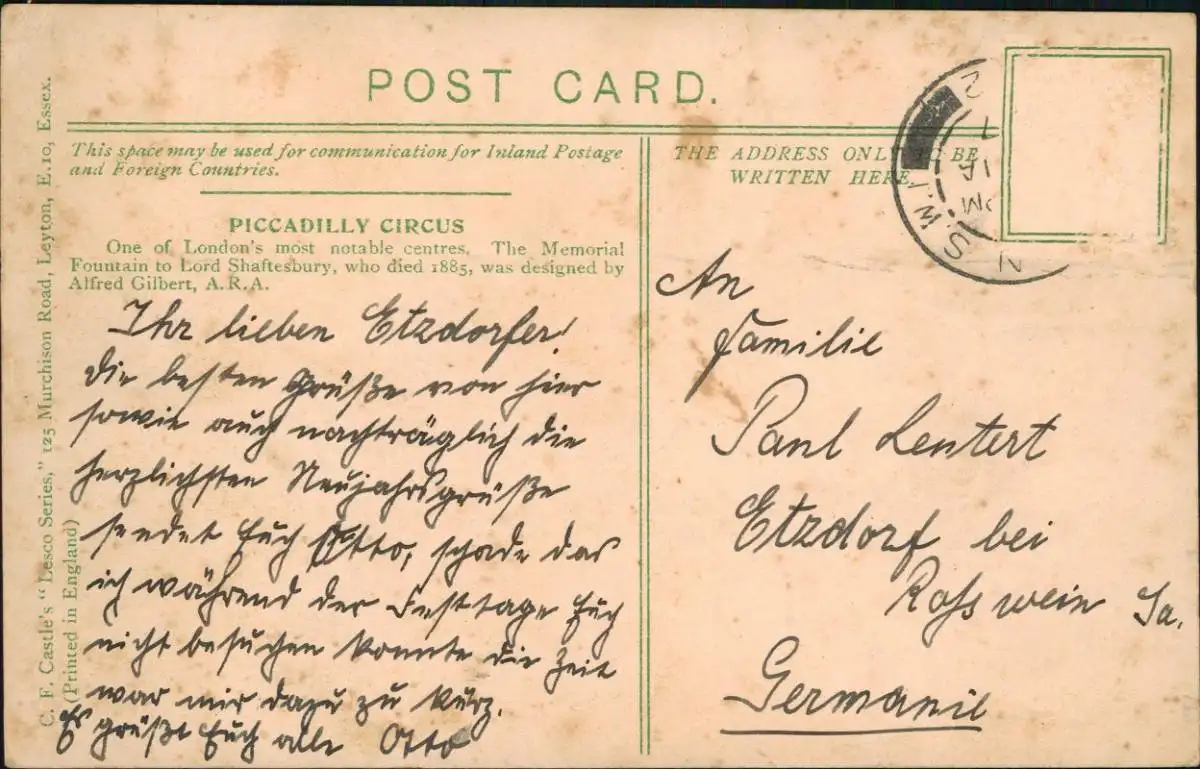 POST CARD.
This space may be used for communication for Inland Postage
and Foreign Countries.
THE ADDRESS ONLY TO BE
WRITTEN HERE.
PICCADILLY CIRCUS
One of London's most notable centres. The Memorial
Fountain to Lord Shaftesbury, who died 1885, was designed by
Alfred Gilbert, A.R.A.
Ihr lieben Etzdorfer!
Die besten Grüße von hier
sowie auch nachträglich die
herzlichsten Neujahrsgrüße
sendet Euch Otto, schade das
ich während der Festtage Euch
nicht besuchen konnte die Zeit
war mir dazu zu kurz.
Es grüßt Euch alle Otto
An
Familie
Paul Leutert
Etzdorf bei
Rosswein Sa.
Germanie
C. F. Castle's "Lesco Series," 125 Murchison Road, Leyton, E.10, Essex.
(Printed in England)
PM
N.S.W.1